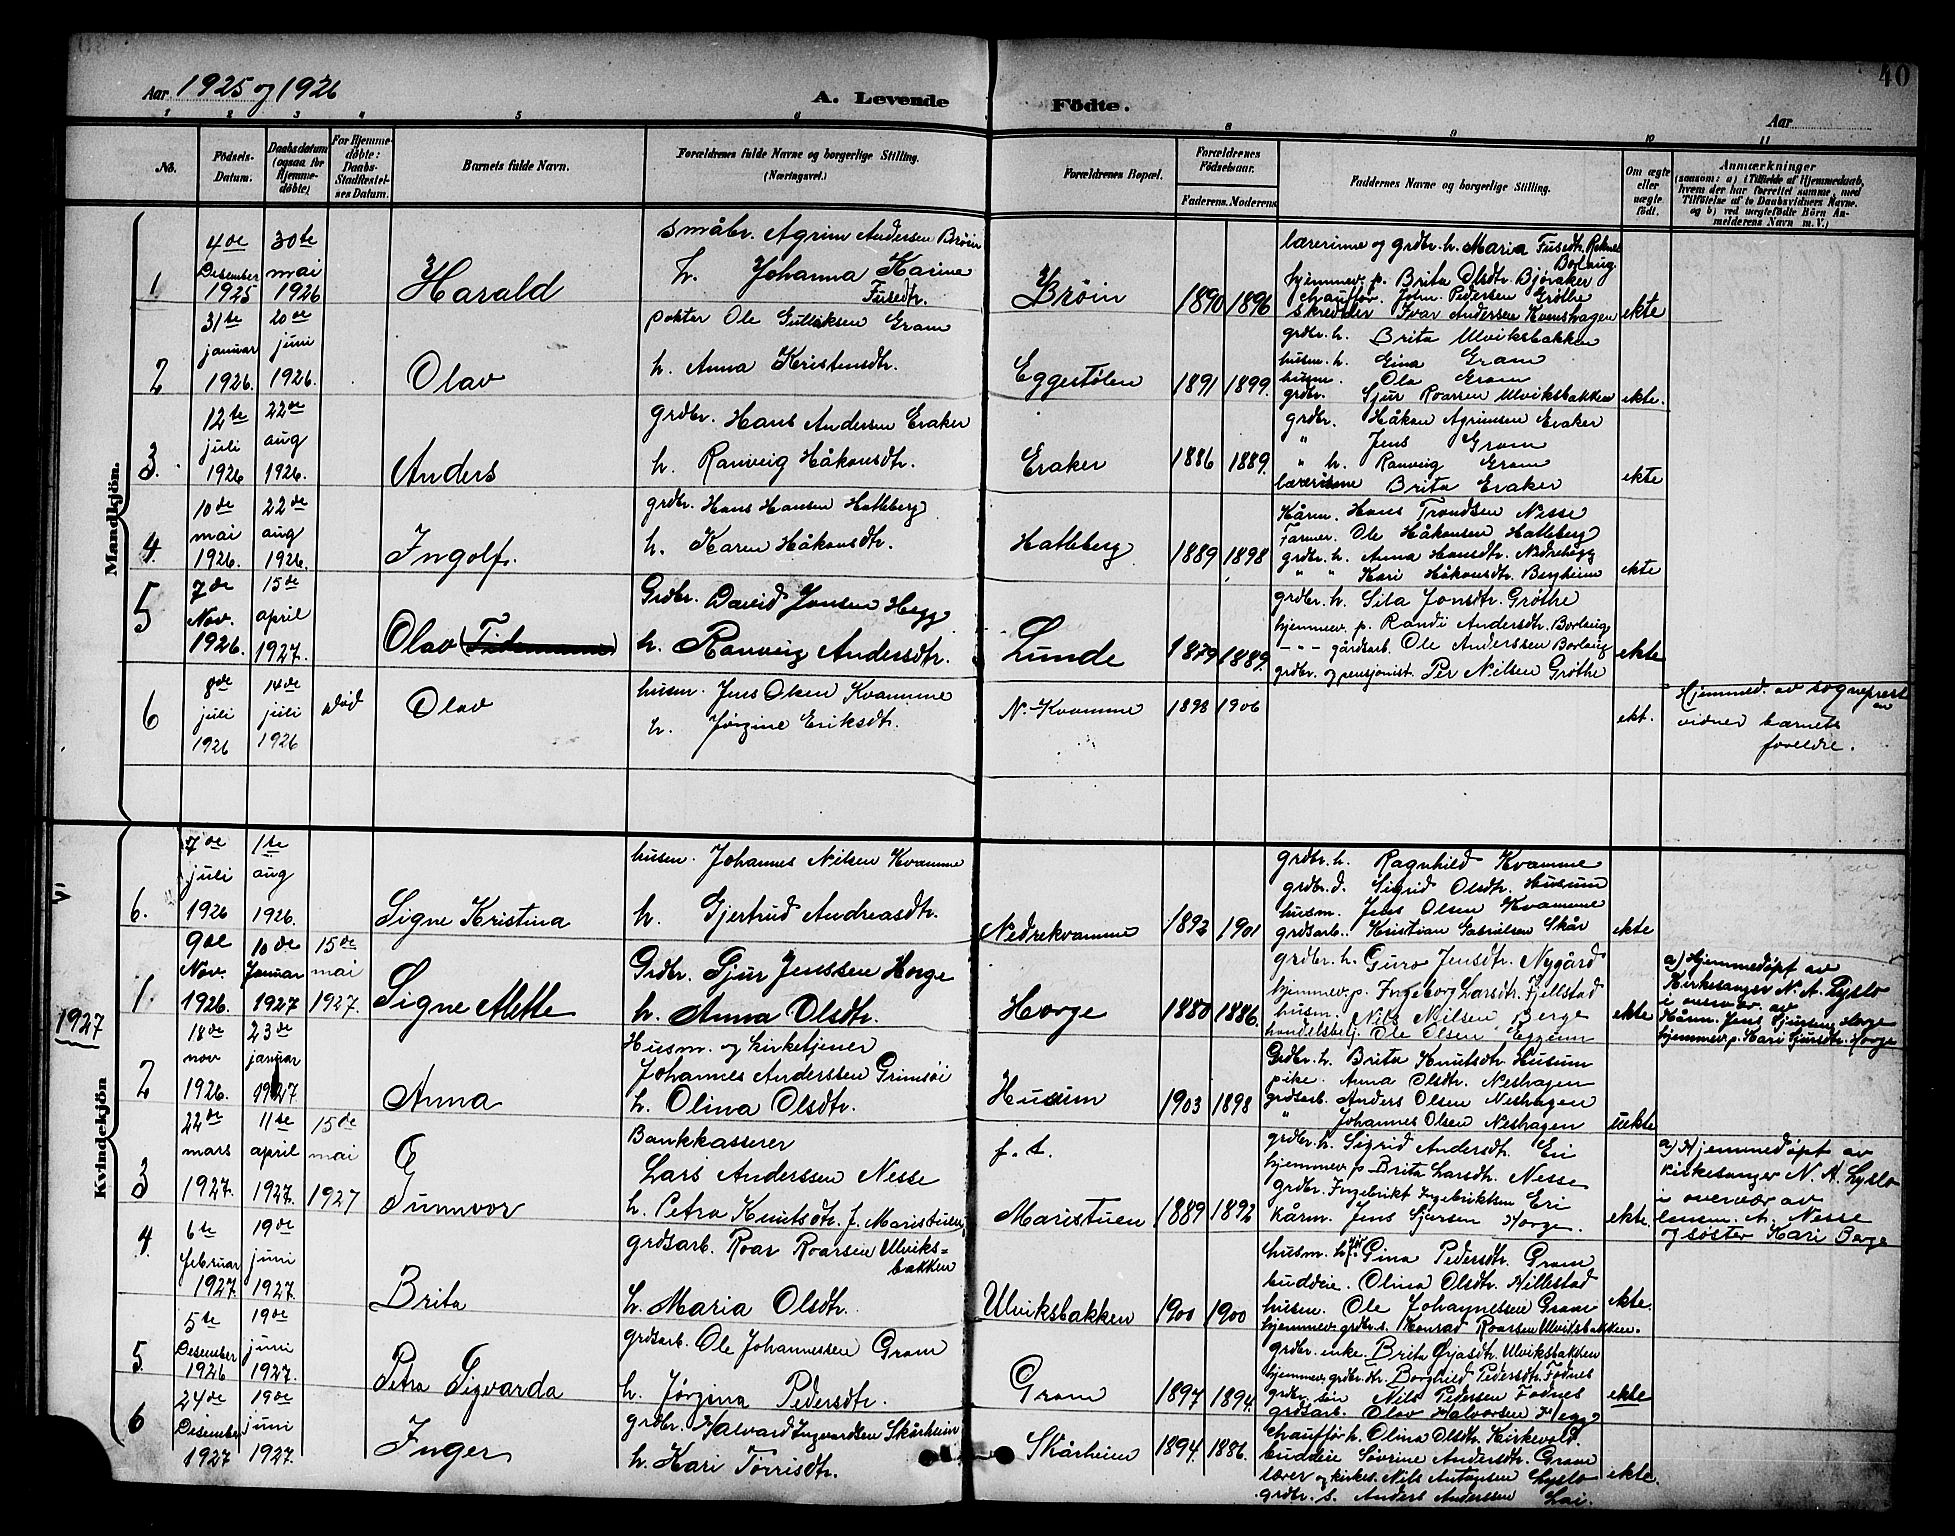 Aar 1925 og 1926
A. Levende Födte.
Aar
40
1 2 3 4 5 6 8 9 10 11
No.
Födsels-Datum.
Daabsdatum (ogsaa for Hjemme-döbte)
For Hjemme-döbte: Daabs-Stadfæstel-ses Datum.
Barnets fulde Navn.
Forældrenes fulde Navne og borgerlige Stilling.
(Næringsvei.)
Forældrenes Bopæl.
Forældrenes Födselsaar.
Faderens. Moderens.
Faddernes Navne og borgerlige Stilling.
Om ægte eller uægte födt.
Anmærkninger
(saasom: a) i Tilfælde af Hjemmedaab,
hvem der har forrettet samme, med
Tilföielse af to Daabsvidners Navne.
og b) ved uægtefödte Börn An-
melderens Navn m. V.)
Mandkjön.
1
4de Desember 1925
30te mai 1926
Harald
småbr. Agrim Andersen Brøin
h. Johanna Karine Fusedtr.
Brøin
1890 1896
lærerinne og grdbr. h. Maria Fusedtr. Borlaug
hjemmev. p. Brita Olsdtr. Bjøraker
chauffør. John Pedersen Grøthe
skredder Ivar Andersen Kvenshagen
ekte
2
31te januar 1926.
20de juni 1926.
Olav
Ole Gulleiksen Gram
h. Anna Kristensdtr.
Eggestølen
1891 1899.
grdbr. h. Brita Ulviksbakken
husm. h. Gina Gram
husm. Ola Gram
grdbr. Sjur Roarsen Ulviksbakken
ekte.
3.
12te juli 1926
22de aug 1926.
Anders
grdbr. Hans Andersen Eraker
h. Ranveig Håkonsdtr.
Eraker
1886 1889.
grdbr. Håkon Agrimsen Eraker
" Jens Gram
" h. Ranveig Gram
lærerinne Brita Eraker
ekte
4
10de mai 1926
22de aug 1926.
Ingolf.
grdbr. Hans Hansen Hatleberg
h. Karen Håkonsdtr.
Hatleberg
1889 1898
Kårm. Hans Trondsen Nesse
Farmer. Ole Håkonsen Hatleberg
grdbr. h. Anna Hansdtr. Nedrehegg
" " Kari Håkonsdtr. Bergheim
ekte
5
7de Nov. 1926.
15de april 1927.
Olav (Tidemann)
Grdbr. David Jonsen Hegg
h. Ranveig Andersdtr.
Lunde
1879 1889.
grdbr. h. Sila Jonsdtr. Grøthe
hjemmev. p. Randi Andersdtr. Borlaug
- " - gårdsarb. Ole Anderssen Borlaug
grdbr. og pensjonist. Per Nilsen Grøthe
ekte
6
8de juli 1926
14de juli 1926
død
Olav
husm. Jens Olsen Kvamme
h. Jørgine Eriksdtr.
N. Kvamme
1898 1906
ekt.
Hjemmed. av sognepresten
vidner barnets
foreldre.
Kvindekjön
6.
7de juli 1926
1ste aug 1926.
Signe Kristina
husm. Johannes Nilsen Kvamme
h. Gjertrud Andreasdtr.
Nedrekvamme
1892 1901
grdbr. h. Ragnhild Kvamme
grdbr. d. Sigrid Olsdtr. Husum
husm. Jens Olsen Kvamme
grdsarb. Kristian Gabrielsen Skår
ekte
1927
1.
9de Nov. 1926.
10de Januar 1927
15de mai 1927.
Signe Alette
Grdbr. Sjur Jenssen Horge
h. Anna Olsdtr.
Horge
1880 1886.
grdbr. h. Guro Jensdtr. Nygård
hjemmev. p. Ingeborg Larsdtr. Fjellstad
husm. Nils Nilsen Berge
handelsbetj. Ole Olsen Eggum
ekte
a) Hjemmedøpt av
Kirkesanger N. A. Lyslo
i overvær av
Kårm. Jens Sjursen Horge
hjemmev. p. Kari Sjursdtr. Horge
2
18de nov 1926.
23de januar 1927
Anna
Husm. og kirketjener
Johannes Anderssen Grimsøi
h. Olina Olsdtr.
Husum
1903 1898
Grdbr. h. Brita Knutsdtr. Husum
pike. Anna Olsdtr. Neshagen
grdsarb. Anders Olsen Neshagen
" Johannes Olsen Neshagen
uekte
3
22de mars 1927.
11te april 1927.
15de mai 1927
Gunnvor
Bankkasserer
Lars Anderssen Nesse
h. Petra Knutsdtr. f. Maristuen
f. t.
Maristuen
1889 1892
grdbr. h. Sigrid Andersdtr. Eri
hjemmev. p Brita Larsdtr. Nesse
grdbr. Ingebrikt Ingebriktsen Eri
Kårm. Jens Sjursen Horge.
ekte.
a) Hjemmedøpt av
kirkesanger N. A. Lyslo
i overvær av
lensm. A. Nesse
og søster Kari Berge
4
6te februar 1927
19de juni 1927.
Brita
grdsarb. Roar Roarsen Ulviks=
bakken
h. Maria Olsdtr.
Ulviksbakken
1900 1900
husm. h. Gina Pedersdtr. Gram
budeie. Olina Olsdtr. Hillestad
husm. Ole Johannessen Gram
hjemmev. grdbr. s. Konrad Roarsen Ulviksbakken.
ekte.
5.
5te Desember 1926
19de juni 1927.
Petra Sigvarda
grdsarb. Ole Johannessen Gram
h. Jørgina Pedersdtr.
Gram
1897 1894.
grdbr. enke. Brita Ulviksbakken
hjemmev. grdbr. dtr. Borghild Pedersdtr. Fodnes
grdbr. søn Nils Pedersen Fodnes
grdsarb. Olav Halvorsen Hegg
ekte
6
24de Desember 1927
19de juni 1927.
Inger
grdbr. Halvard Ingvardsen Skårheim
h. Kari Torrisdtr.
Skårheim
1894. 1886.
chauffør h. Olina Olsdtr. Kirkevold.
budeie Søvrine Andersdtr. Gram
lærer og kirkes. Nils Antonsen Lyslo
grdbr. s. Anders Anderssen Loi.
ekte.